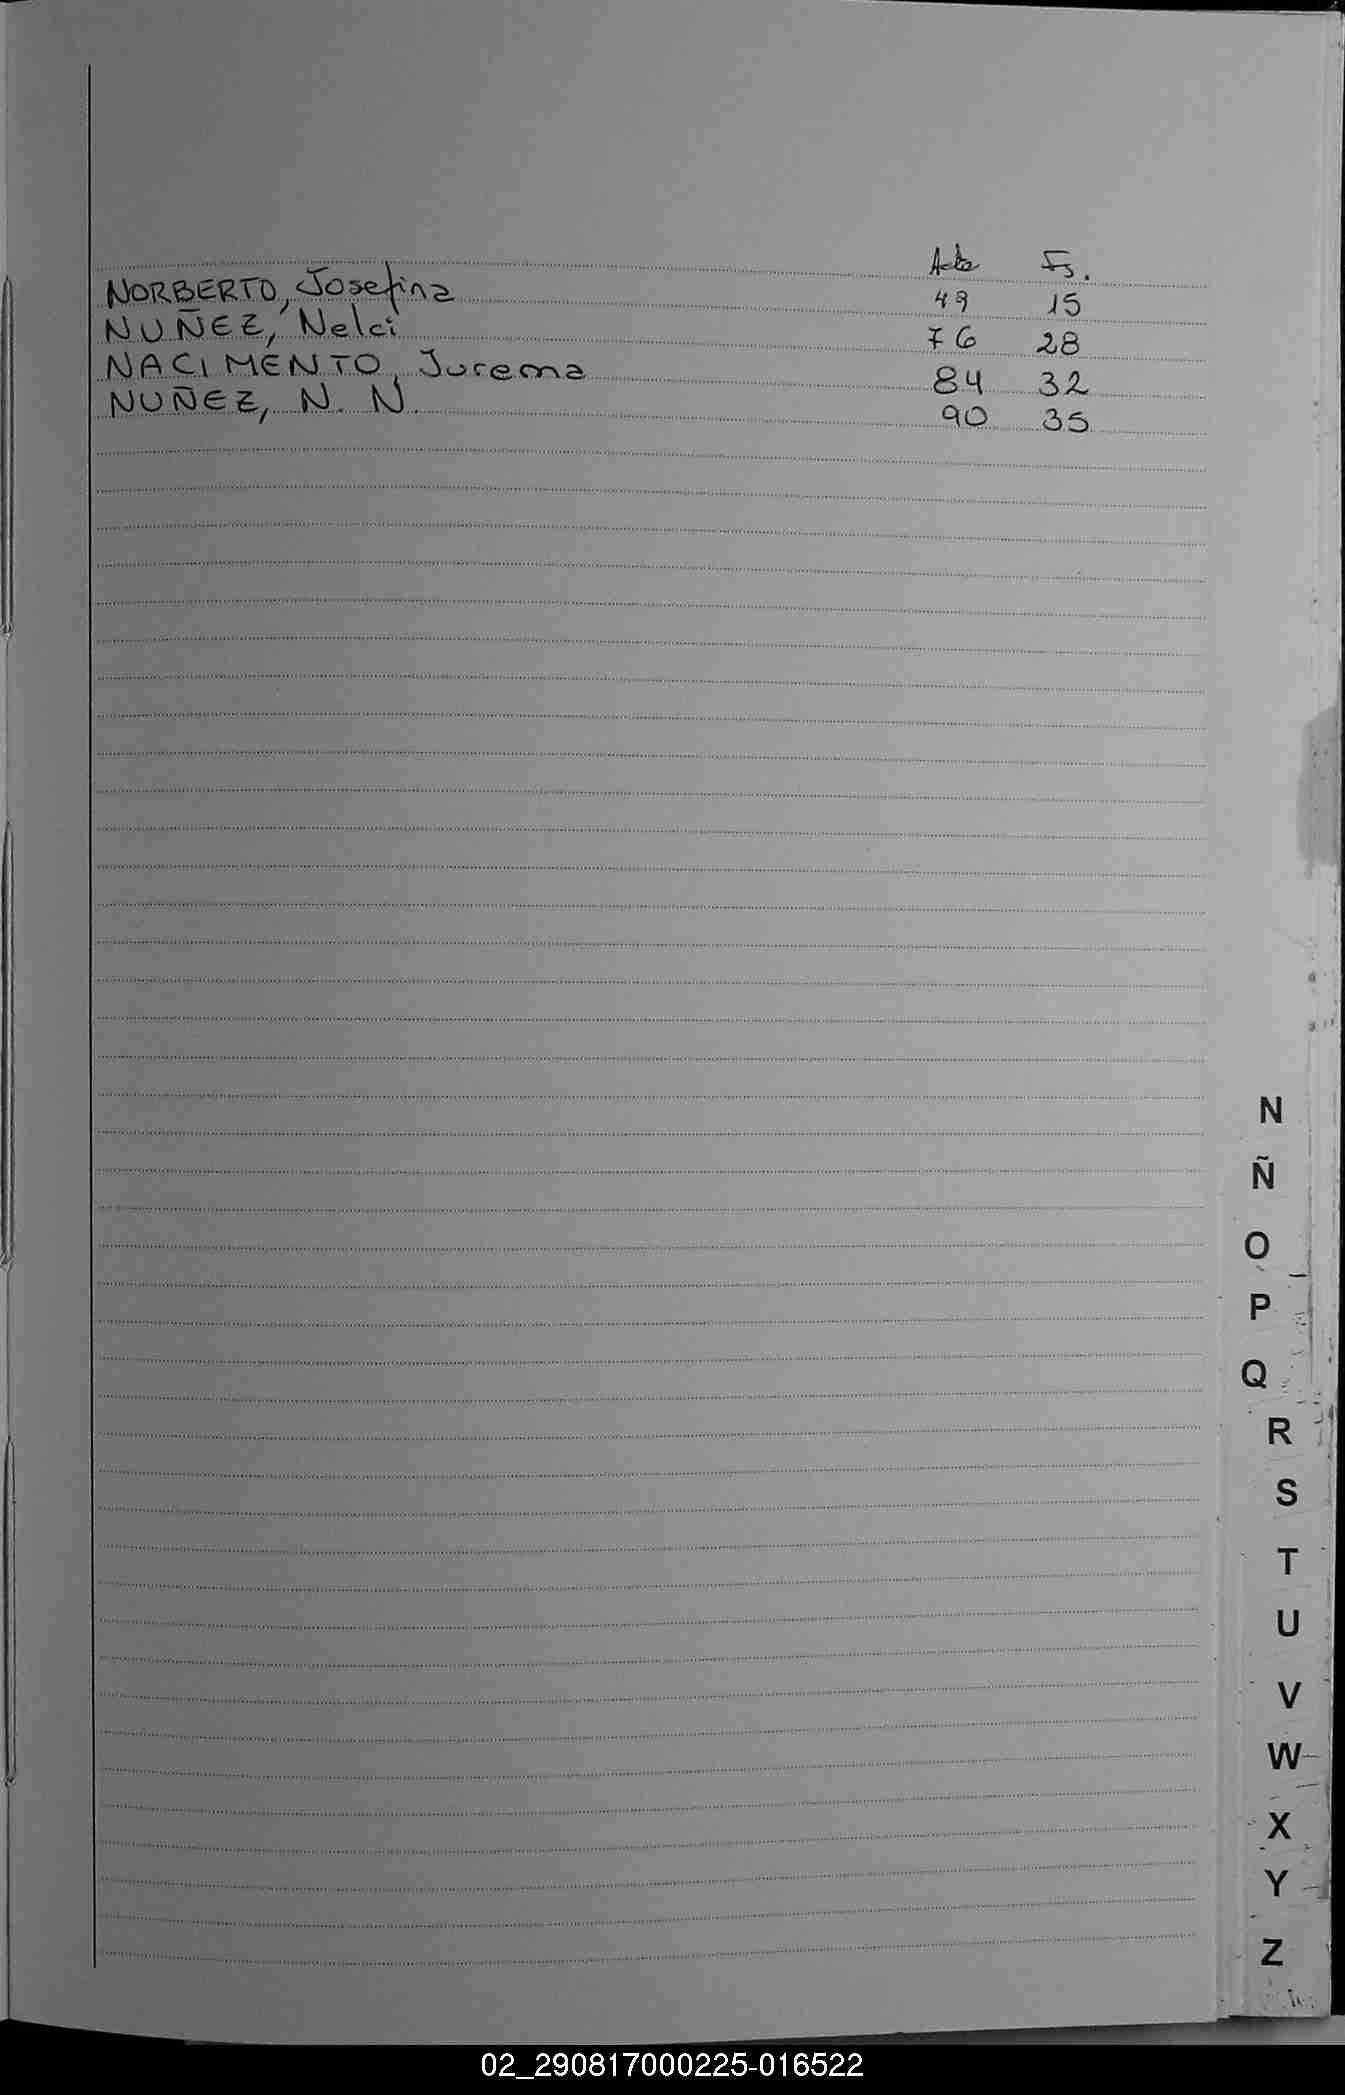 Acta Fs.
NORBERTO, Josefina 49 15
NUÑEZ, Nelci 76 28
NACIMENTO, Jurema 84 32
NUÑEZ, N. N. 90 35
N
Ñ
O
P
Q
R
S
T
U
V
W
X
Y
Z
02_290817000225-016522